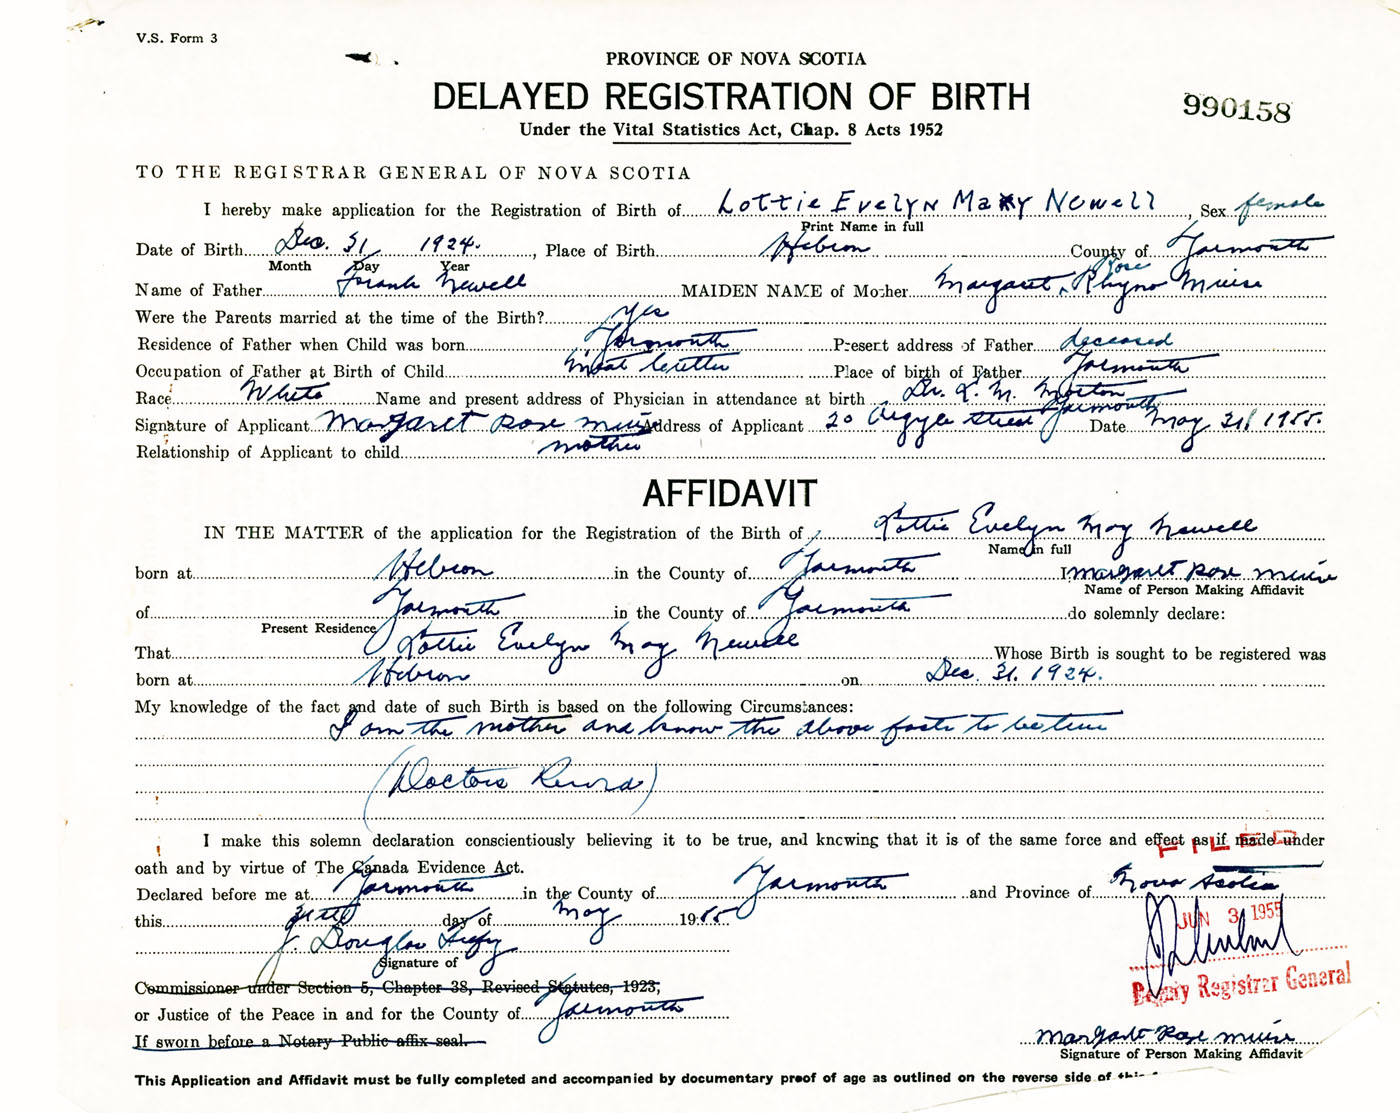 V.S. Form 3
PROVINCE OF NOVA SCOTIA
DELAYED REGISTRATION OF BIRTH
990158
Under the Vital Statistics Act, Chap. 8 Acts 1952
TO THE REGISTRAR GENERAL OF NOVA SCOTIA
I hereby make application for the Registration of Birth of Lottie Evelyn May Newell, Sex female
Print Name in full
Date of Birth Dec. 31 1924., Place of Birth Hebron County of Yarmouth
Month Day Year
Name of Father Frank Newell MAIDEN NAME of Mother Margaret Rose Rhyno Muise
Were the Parents married at the time of the Birth? Yes
Residence of Father when Child was born Yarmouth Present address of Father deceased
Occupation of Father at Birth of Child Meat Cutter Place of birth of Father Yarmouth
Race White Name and present address of Physician in attendance at birth Dr. L. M. Morton Yarmouth
Signature of Applicant Margaret Rose Muise Address of Applicant 20 Argyle Street Yarmouth Date May 31 1955.
Relationship of Applicant to child mother
AFFIDAVIT
IN THE MATTER of the application for the Registration of the Birth of Lottie Evelyn May Newell
Name in full
born at Hebron in the County of Yarmouth I Margaret Rose Muise
Name of Person Making Affidavit
of Yarmouth in the County of Yarmouth do solemnly declare:
Present Residence
That Lottie Evelyn May Newell Whose Birth is sought to be registered was
born at Hebron on Dec. 31. 1924.
My knowledge of the fact and date of such Birth is based on the following Circumstances:
I am the mother and know the above facts to be true
(Doctors Record)
I make this solemn declaration conscientiously believing it to be true, and knowing that it is of the same force and effect as if made under
FILED
oath and by virtue of The Canada Evidence Act.
Declared before me at Yarmouth in the County of Yarmouth and Province of Nova Scotia
this day of May 1955
JUN 3 1955
J. Douglas
Signature of
Deputy Registrar General
Commissioner under Section 5, Chapter 38, Revised Statutes, 1923,
or Justice of the Peace in and for the County of Yarmouth
If sworn before a Notary Public affix seal.
Margaret Rose Muise
Signature of Person Making Affidavit
This Application and Affidavit must be fully completed and accompanied by documentary proof of age as outlined on the reverse side of this